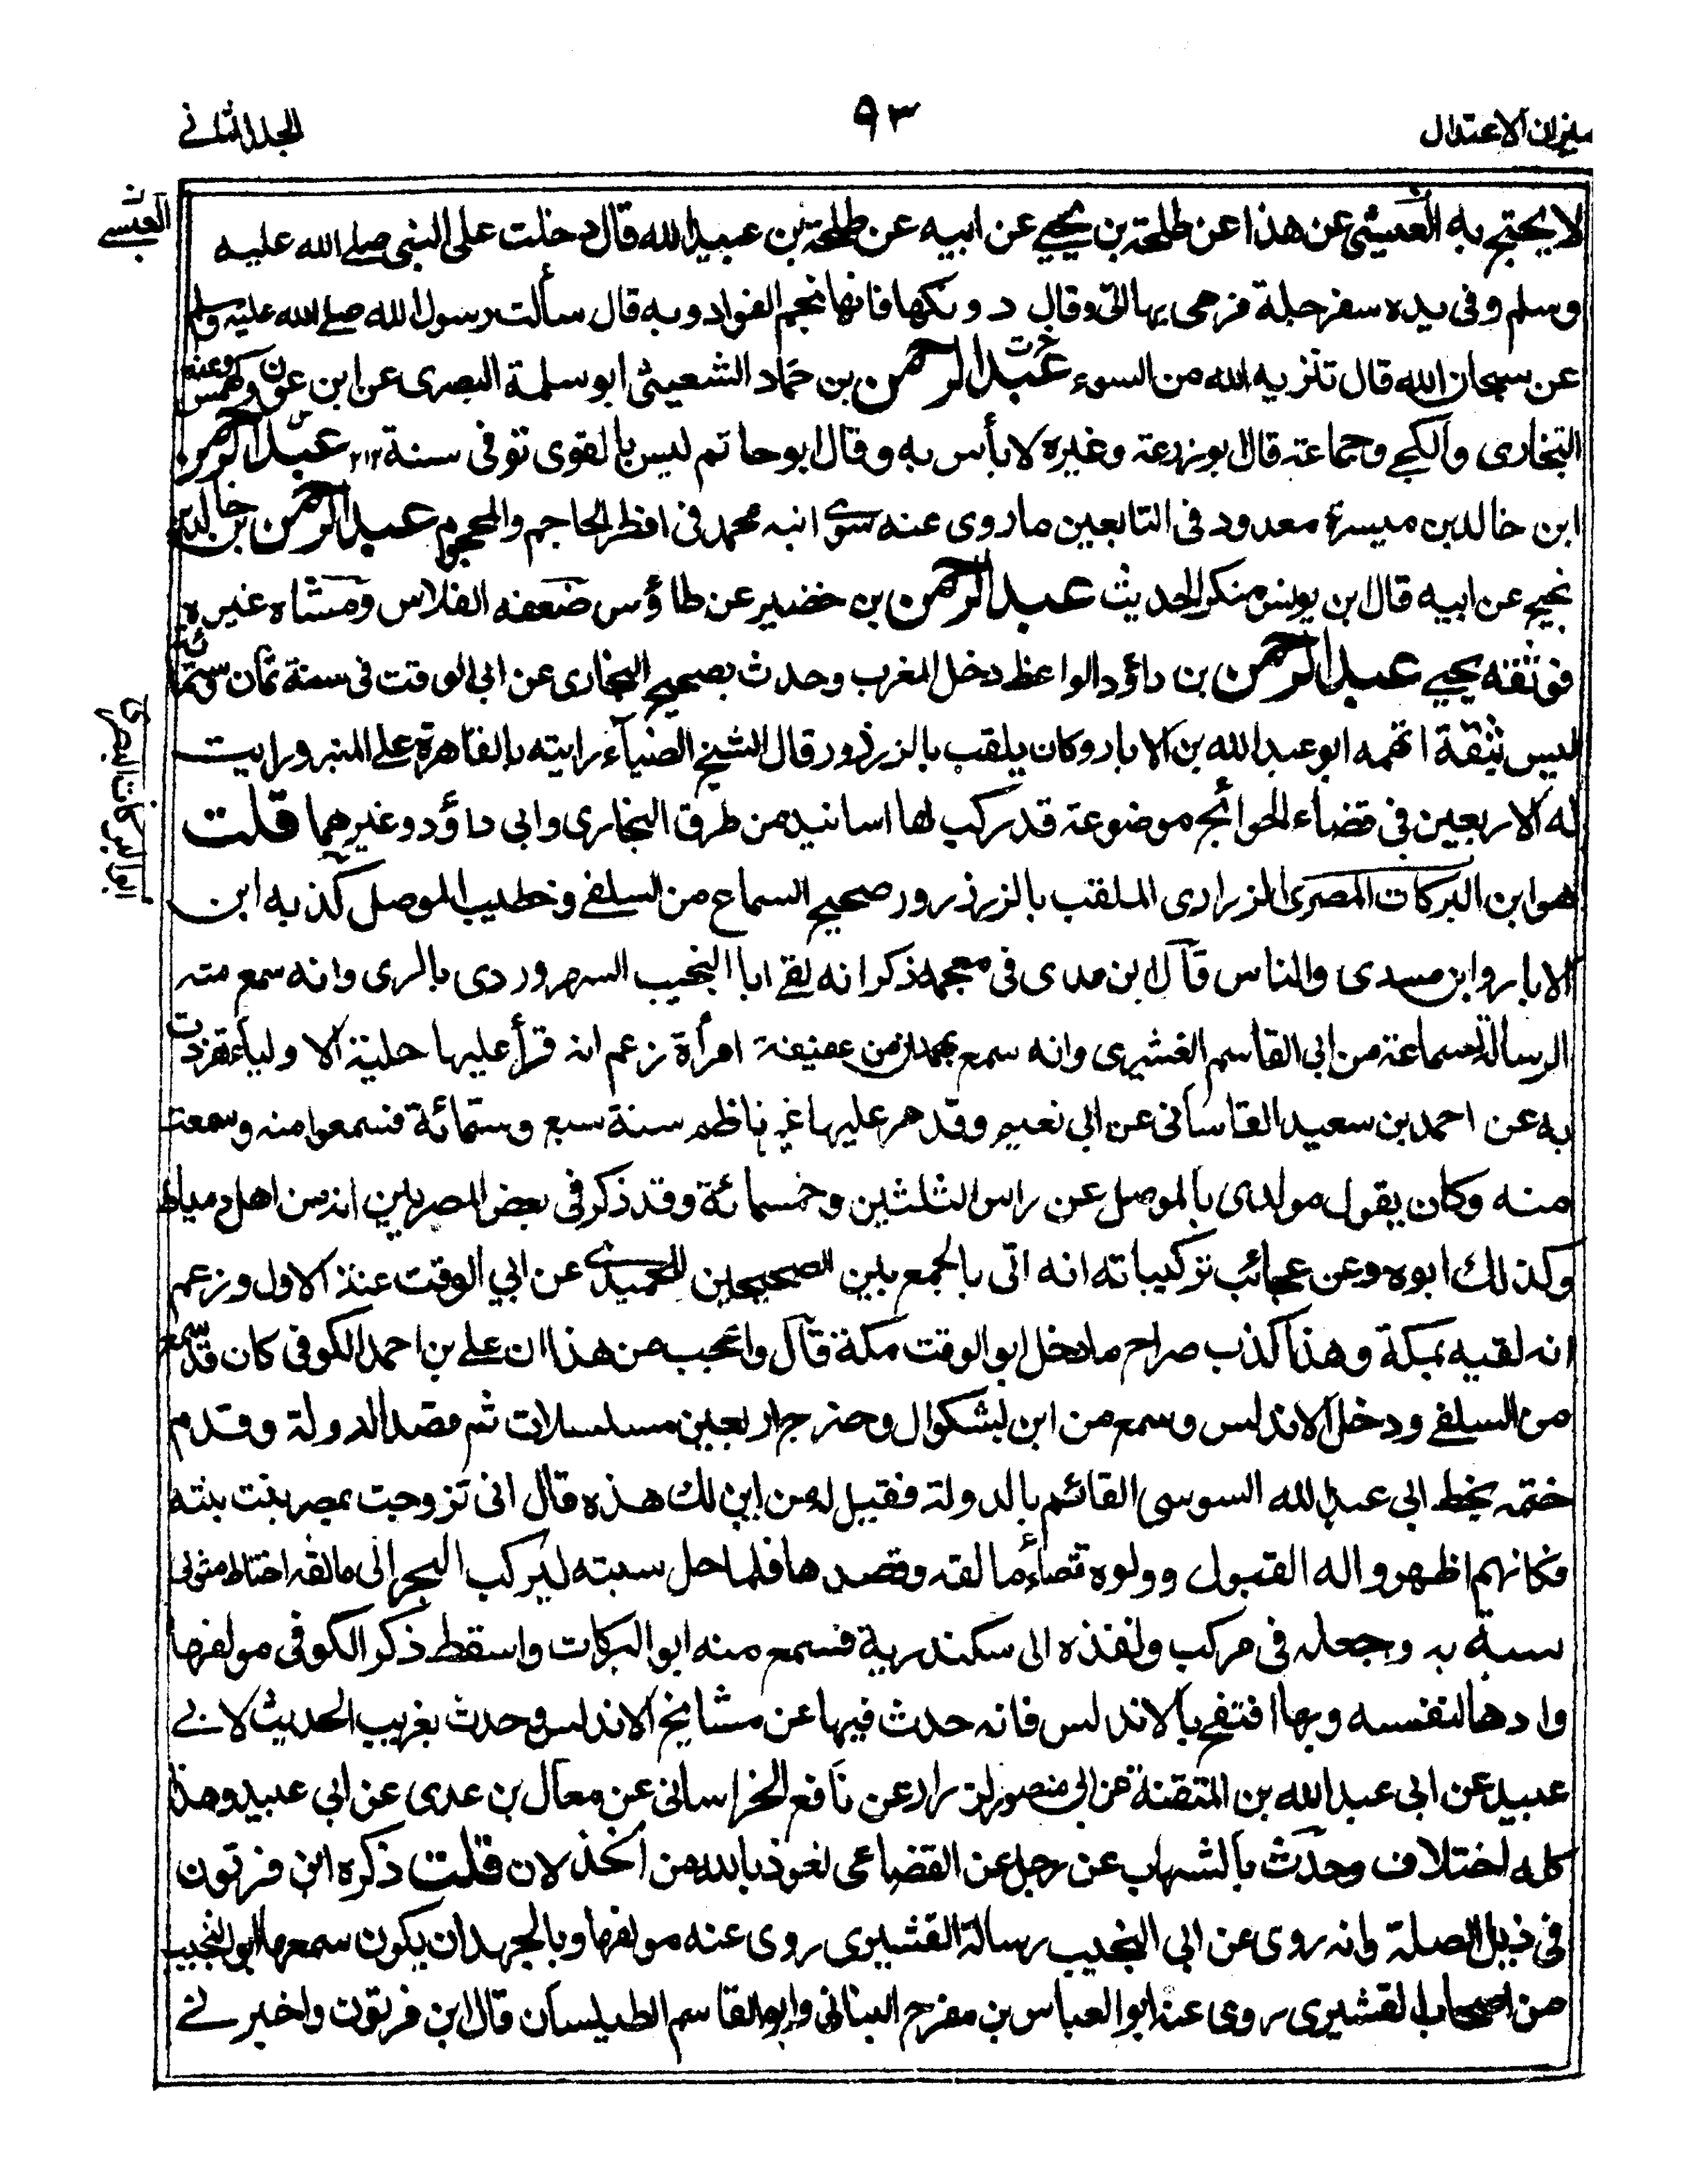 ميزان الاعتدال
٩٣
المجلد الثاني
لا يحتج به العيشي عن هذا عن طلحة بن يحيي عن ابيه عن طلحة بن عبيد الله قال دخلت على النبي صلے الله عليه
العبسے
وسلم وفي يده سفرجلة فرمى بها الىّ وقال دونكها فانها تجم الفواد وبه قال سألت رسول الله صلے الله عليه وسلم
عن سبحان الله قال تنزيه الله من السوء خ ت عبد الرحمن بن حماد الشعيثي ابو سلمة البصرى عن ابن عون وكهمس وعنه
البخارى والكجے وجماعة قال ابو زرعة وغيره لا بأس به وقال ابو حاتم ليس بالقوى توفى سنة ٢١٢ عبد الرحمن
ابن خالد بن ميسرة معدود فى التابعين ما روى عنه سوى ابنه محمد فى افطر الحاجم والمحجوم عبد الرحمن بن خالد بن
نجيح عن ابيه قال ابن يونس منكر الحديث عبد الرحمن بن خضير عن طاؤس ضعفه الفلاس ومشاه غيره
فوثقه يحيے عبد الرحمن بن داؤد الواعظ دخل المغرب وحدث بصحيح البخارى عن ابى الوقت فى سنة ثمان وستمائة
ليس بثقة اتهمه ابو عبد الله بن الابار وكان يلقب بالزرزور قال الشيخ الضياء رايته بالقاهرة على المنبر ورايت
له الاربعين فى قضاء الحوائج موضوعة قد ركب لها اسانيد من طرق البخارى وابى داؤد وغيرهما قلت
ابو البركات البصرى
هو ابن البركات المصرى الزرادى الملقب بالزرزور صحيح السماع من السلفے وخطيب الموصل كذبه ابن
الابار وابن مسدى والناس قال ابن مسدى فى معجمه ذكر انه لقے ابا النجيب السهروردى بالرى وانه سمع منه
الرسالة بسماعه من ابى القاسم القشيرى وانه سمع بهمدان من عفيفة امرأة زعم انه قرأ عليها حلية الاولياء تفردت
به عن احمد بن سعيد القاسانى عن ابى نعيم وقدم علينا غرناطة سنة سبع وستمائة فسمعوا منه وسمعت
منه وكان يقول مولدى بالموصل عن راس الثلثين وخمسمائة وقد ذكر فى بعض المصريين انه من اهل دمياط
وكذلك ابوه وعن عجائب تركيباته انه اتى بالجمع بين الصحيحين للحميدى عن ابي الوقت عند الاول وزعم
انه لقيه بمكة وهذا كذب صراح ما دخل ابو الوقت مكة قال واعجب من هذا ان علے بن احمد الكوفى كان قد سمع
من السلفے ودخل الاندلس وسمع من ابن بشكوال وخرج اربعين مسلسلات ثم قصد الدولة وقدم
ختمه بخط ابى عبد الله السوسى القائم بالدولة فقيل له من اين لك هذه قال انى تزوجت بمصر بنت بنته
فكانهم اظهروا له القبول وولوه قضاء مالقه وقصدها فلما حل سبته ليركب البحر الى مالقه احتاط متولى
سبتة به وجعله فى مركب ونفذه الى سكندرية فسمع منه ابو البركات واسقط ذكر الكوفى مولفها
وادها لنفسه وبها افتتح بالاندلس فانه حدث فيها عن مشايخ الاندلس وحدث بغريب الحديث لابے
عبيد عن ابى عبد الله بن المتقنة عن ابى منصور الزراد عن نافع الخراسانى عن معال بن عدى عن ابى عبيد وهذا
كله اختلاف وحدث بالشهاب عن رجل عن القضاعى نعوذ بالله من الخذلان قلت ذكره ابن فرتون
فى ذيل الصلة وانه روى عن ابى النجيب رسالة القشيرى روى عنه مولفها وبالجهد ان يكون سمعها ابو النجيب
من اصحاب القشيرى روى عنه ابو العباس بن مفرج البنانى وابو القاسم الطيلسان قال ابن فرتون واخبرنے